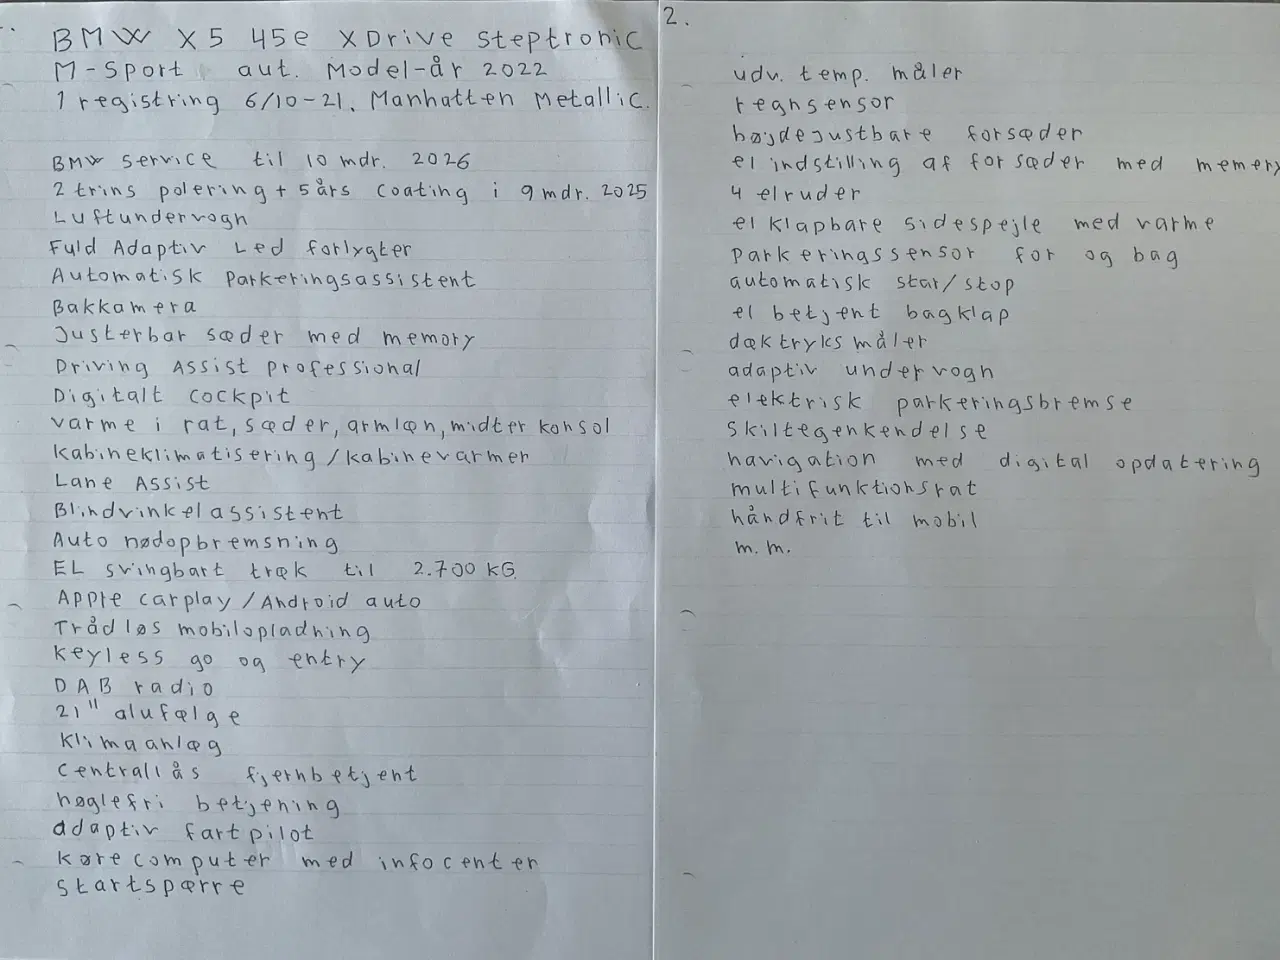 BMW X5 45e XDrive steptronic
M-Sport aut. Model-år 2022
1 registring 6/10-21. Manhatten Metallic.
BMW service til 10 mdr. 2026
2 trins polering + 5 års coating i 9 mdr. 2025
Luftundervogn
Fuld Adaptiv Led forlygter
Automatisk Parkeringsassistent
Bakkamera
Justerbar sæder med memory
Driving Assist Professional
Digitalt cockpit
varme i rat, sæder, armlæn, midter konsol
Kabineklimatisering / kabinevarmer
Lane Assist
Blindvinkelassistent
Auto nødopbremsning
EL svingbart træk til 2.700 KG.
Apple carplay / Android auto
Trådløs mobilopladning
keyless go og entry
DAB radio
21" alufælge
Klimaanlæg
Centrallås fjernbetjent
nøglefri betjening
adaptiv fartpilot
kørecomputer med infocenter
startspærre
2.
udv. temp. måler
regnsensor
højdejustbare forsæder
el indstilling af forsæder med memory
4 elruder
el klapbare sidespejle med varme
parkeringssensor for og bag
automatisk star/stop
el betjent bagklap
dæktryksmåler
adaptiv undervogn
elektrisk parkeringsbremse
skiltegenkendelse
navigation med digital opdatering
multifunktionsrat
håndfrit til mobil
m.m.